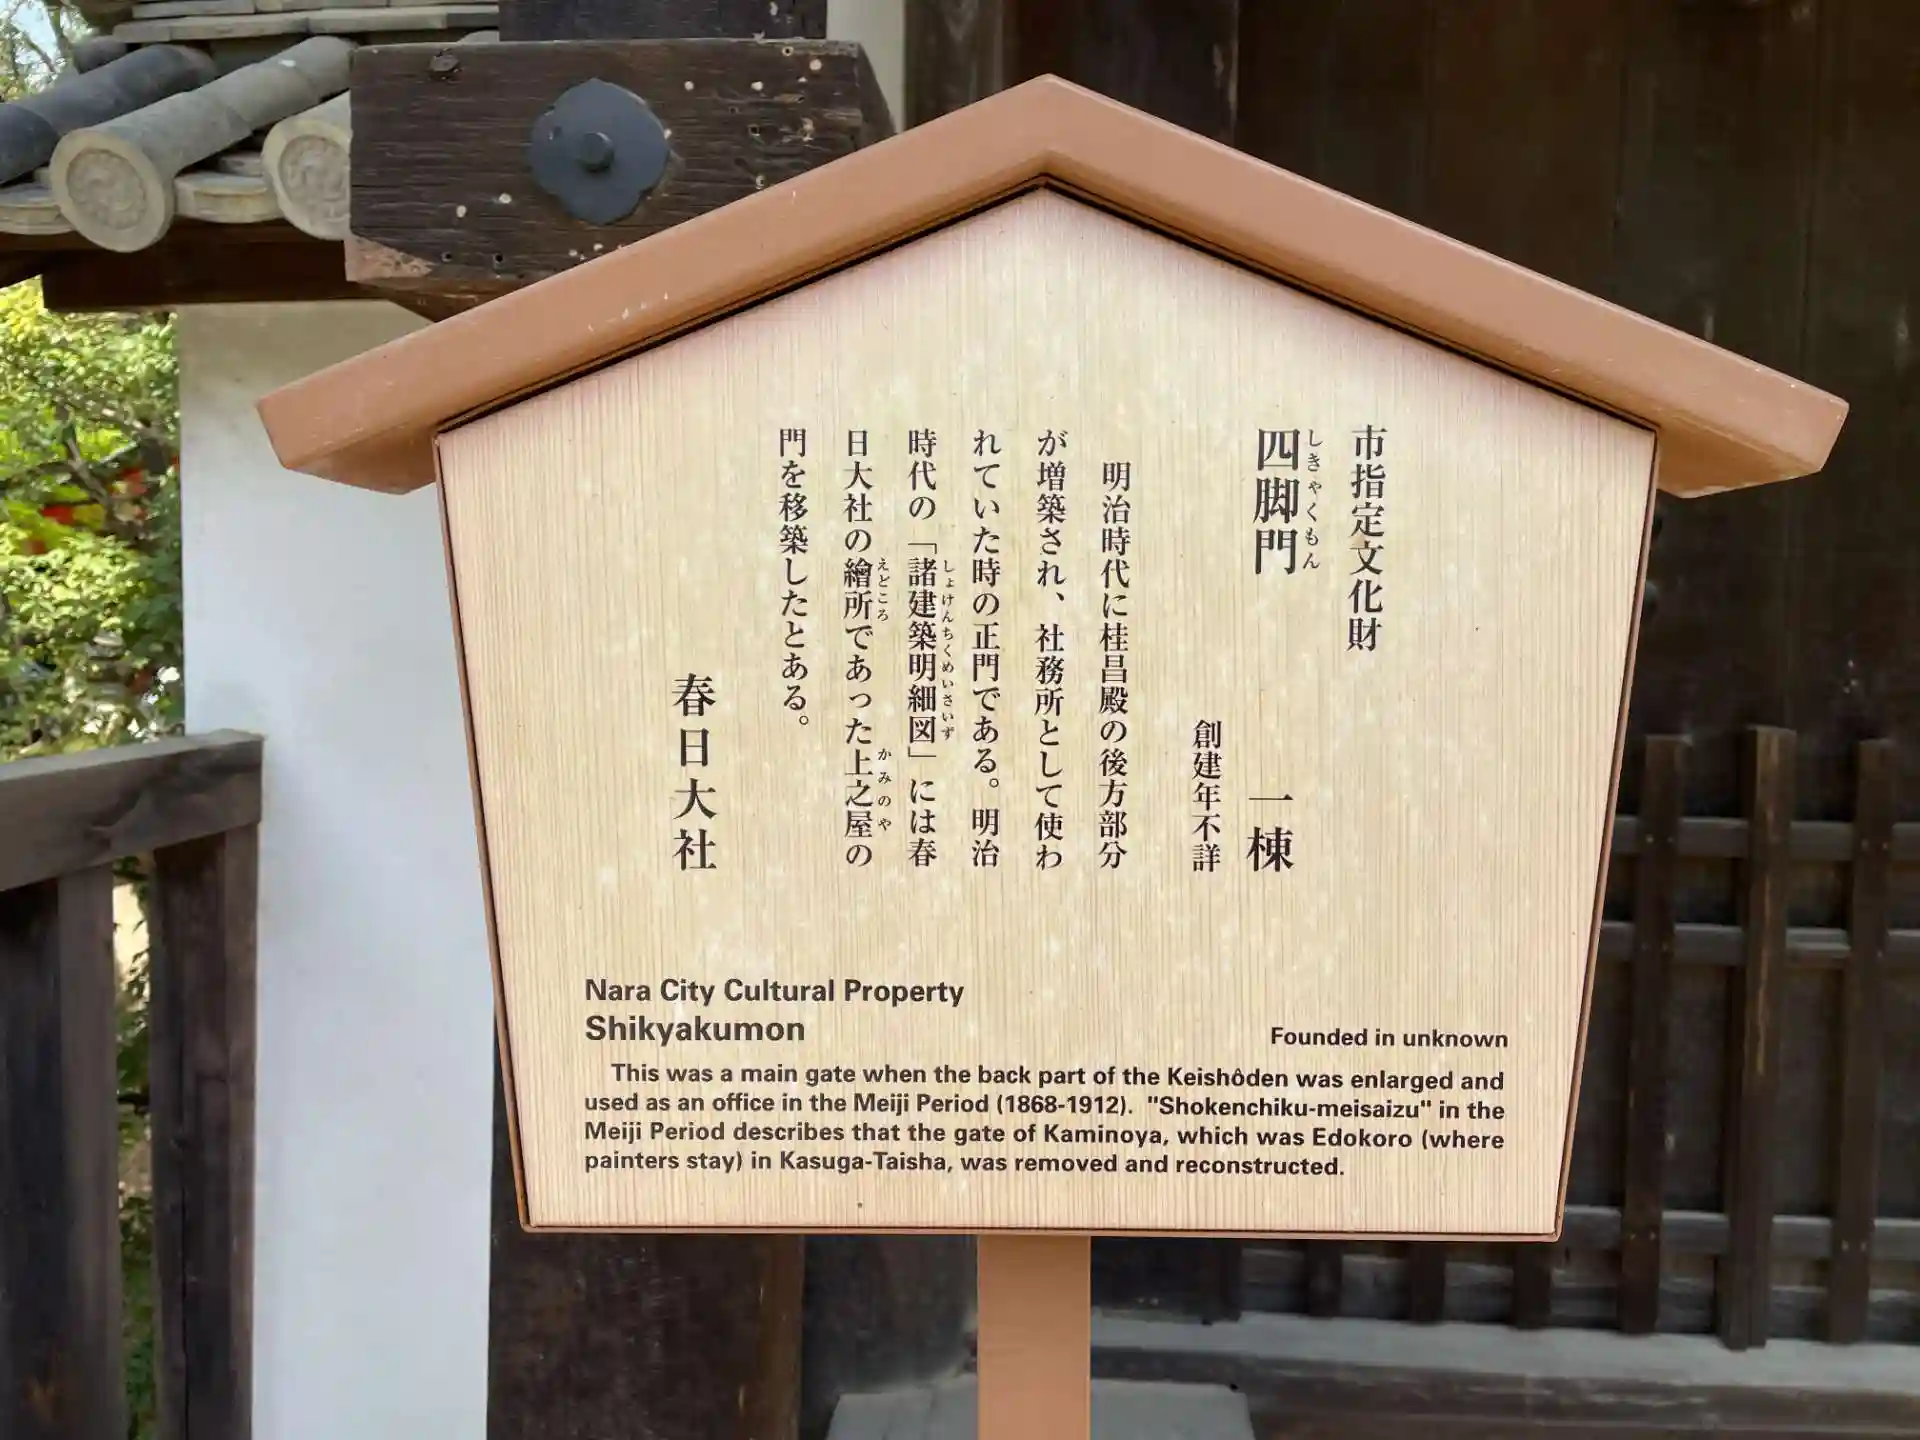 市指定文化財
四脚門 一棟
しきゃくもん
創建年不詳
明治時代に桂昌殿の後方部分
が増築され、社務所として使わ
れていた時の正門である。明治
時代の「諸建築明細図」には春
しょけんちくめいさいず
日大社の繪所であった上之屋の
えどころ かみのや
門を移築したとある。
春日大社
Nara City Cultural Property
Shikyakumon
Founded in unknown
This was a main gate when the back part of the Keishôden was enlarged and
used as an office in the Meiji Period (1868-1912). "Shokenchiku-meisaizu" in the
Meiji Period describes that the gate of Kaminoya, which was Edokoro (where
painters stay) in Kasuga-Taisha, was removed and reconstructed.